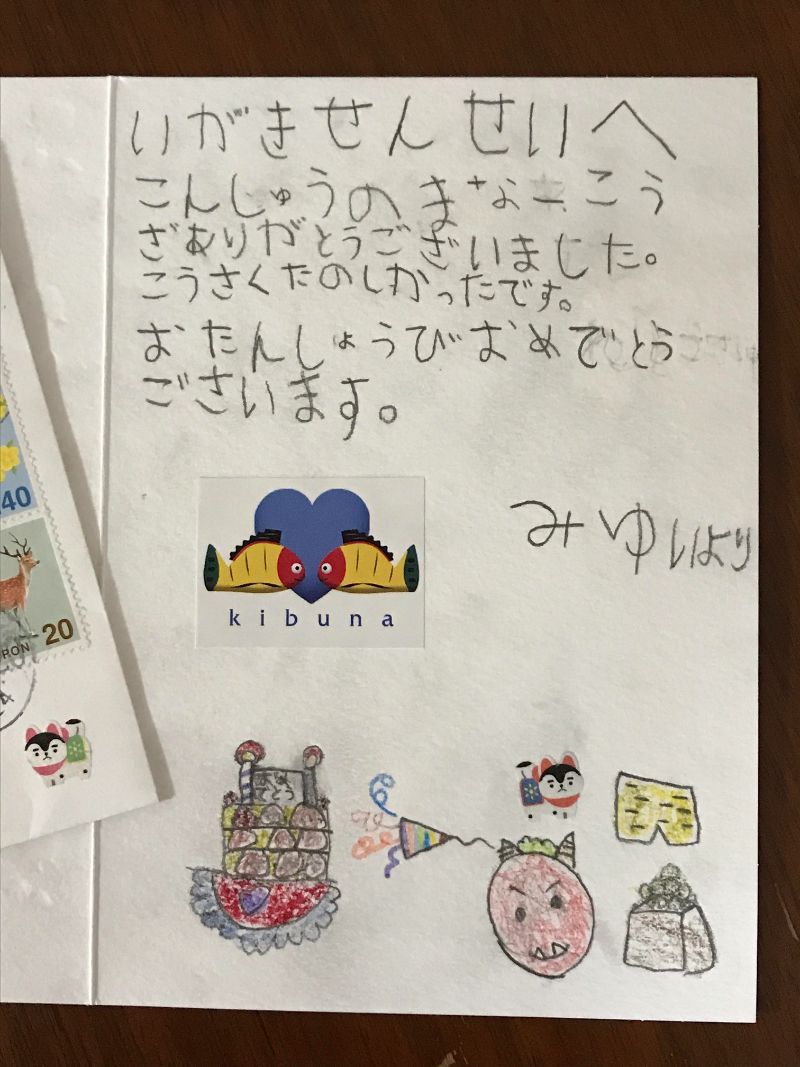 いがきせんせいへ
こんしゅうのまなーこう
ざありがとうございました。
こうさくたのしかったです。
おたんしょうびおめでとう
ございます。
みゆいより
kibuna
40
20